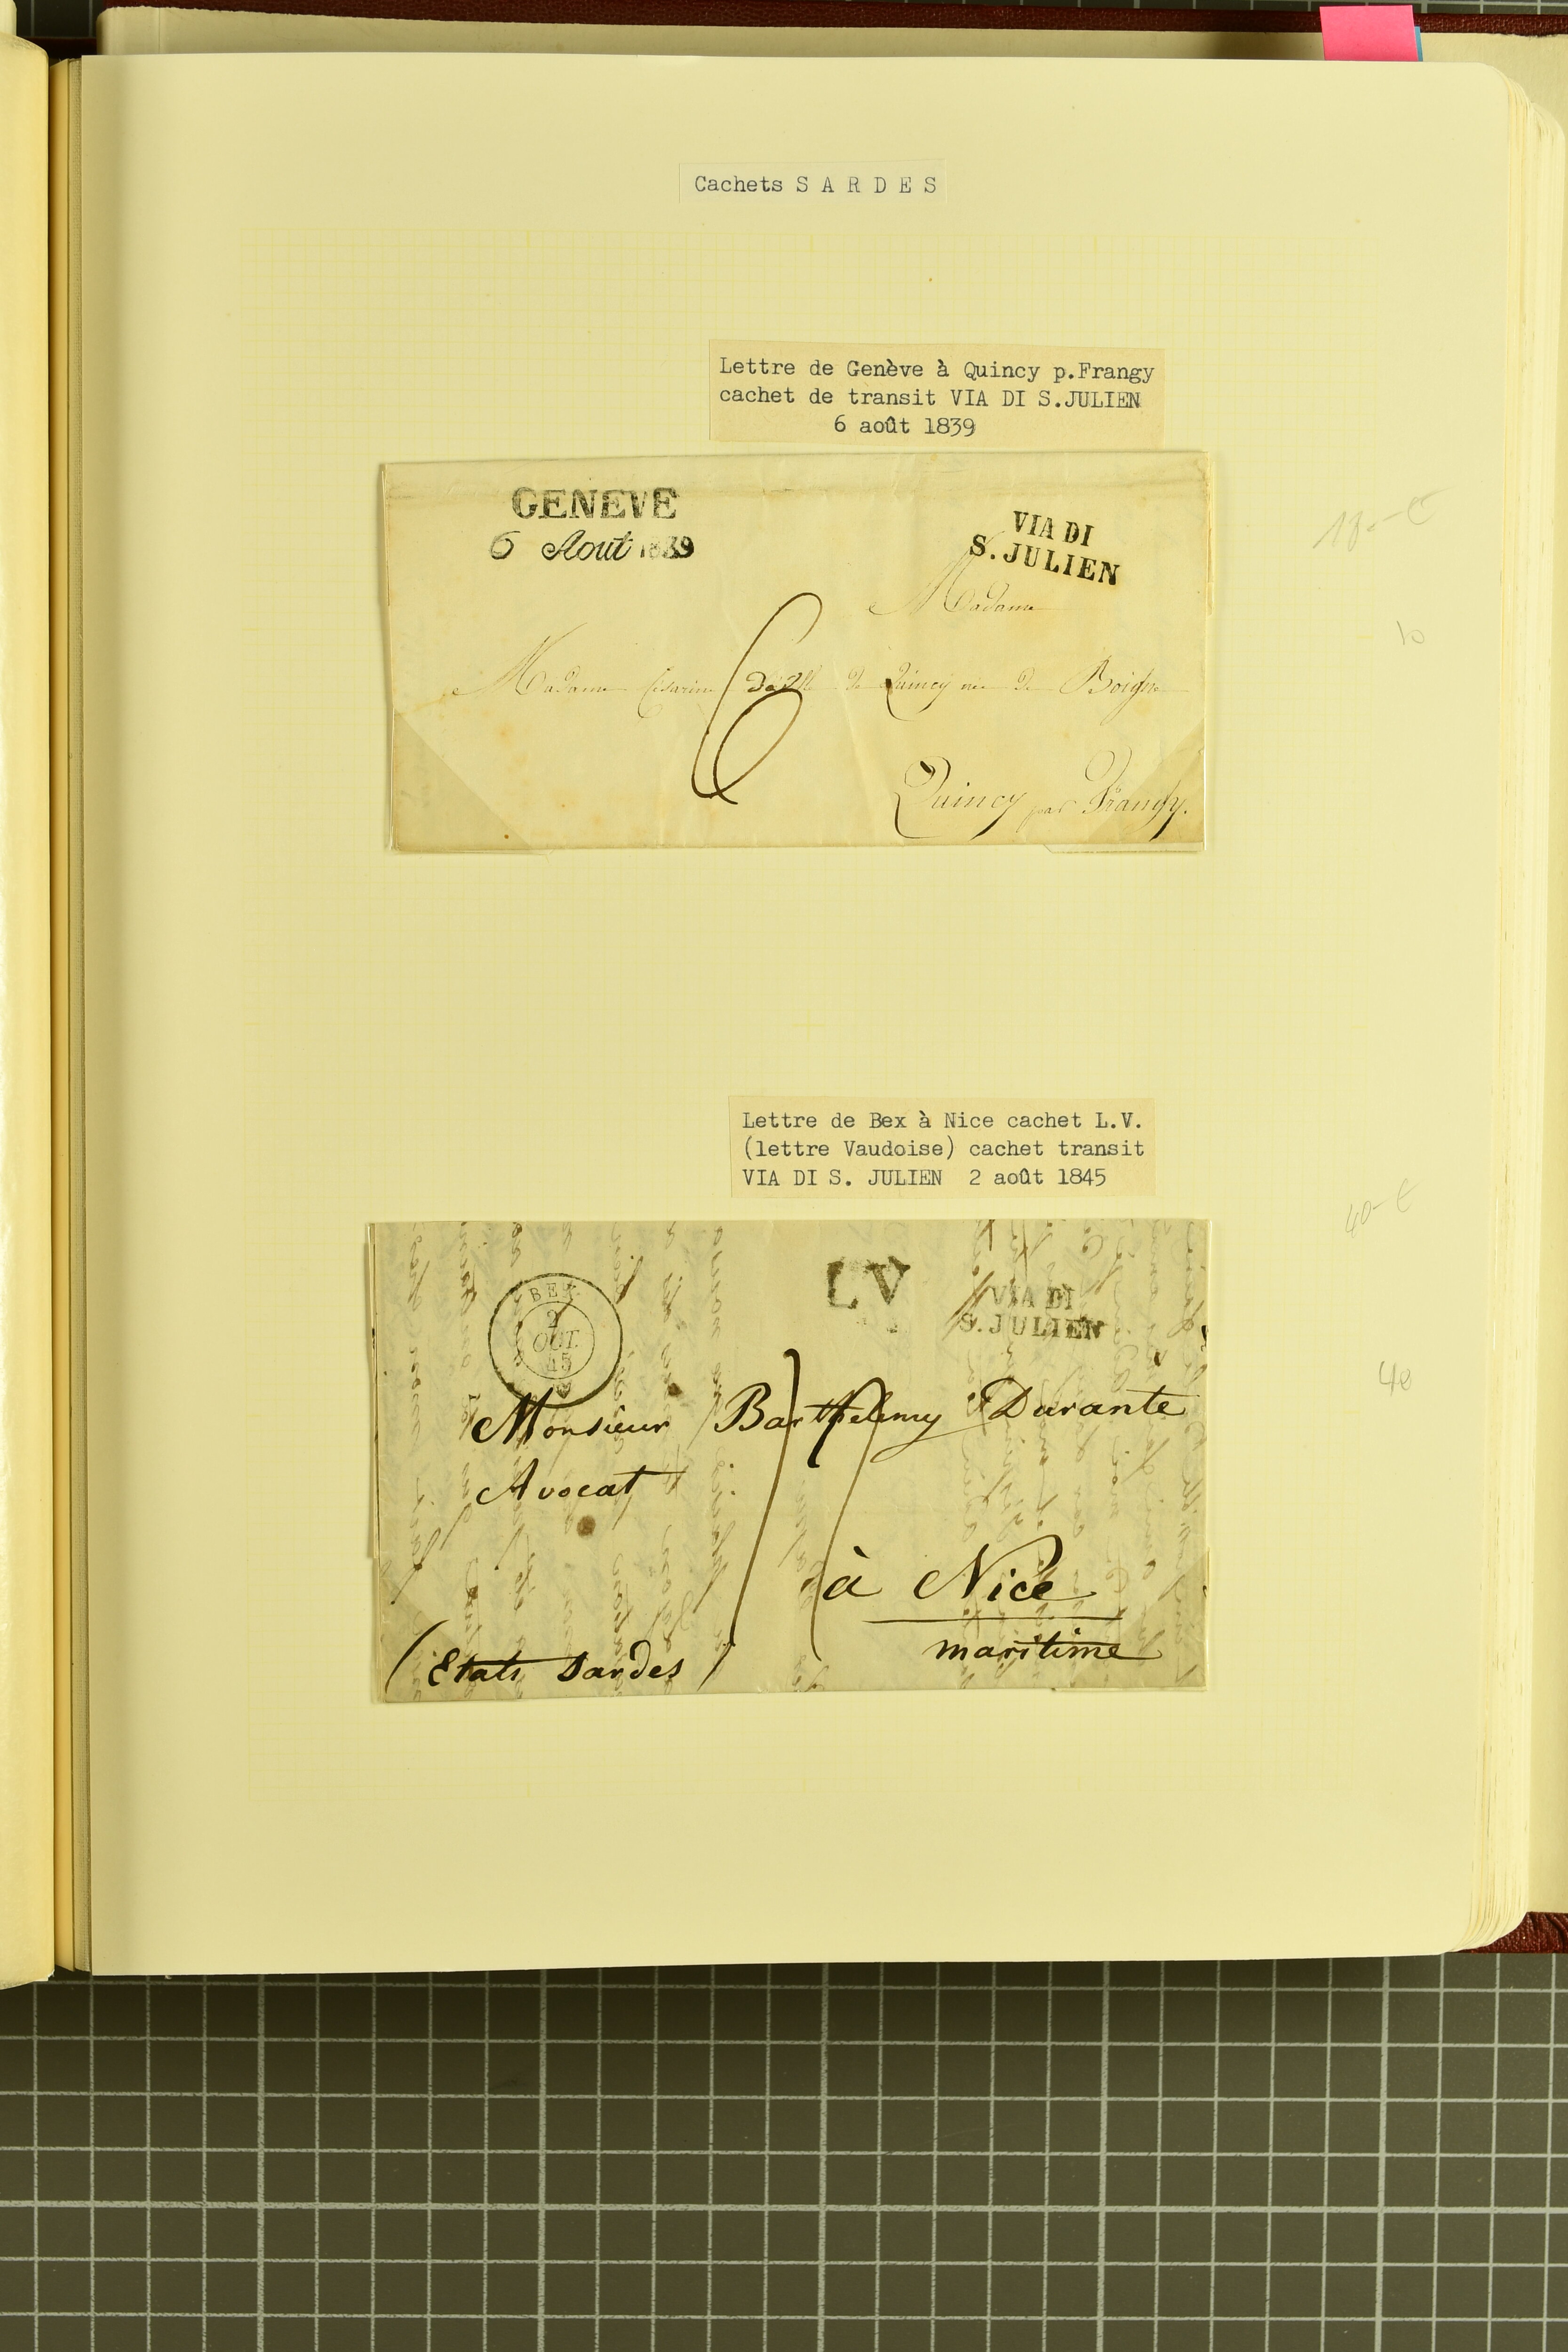 Cachets S A R D E S
Lettre de Genève à Quincy p.Frangy
cachet de transit VIA DI S.JULIEN
6 août 1839
GENEVE
6 Aout 1839
VIA DI
S. JULIEN
Madame
6
Madame de Quincy née de Boigne
Quincy par Frangy.
10
Lettre de Bex à Nice cachet L.V.
(lettre Vaudoise) cachet transit
VIA DI S. JULIEN 2 août 1845
40- €
BEX
2
OUT
45
LV
VIA DI
S. JULIEN
Monsieur Barthelemy Durante
Avocat
40
à Nice
maritime
(Etats Sardes)